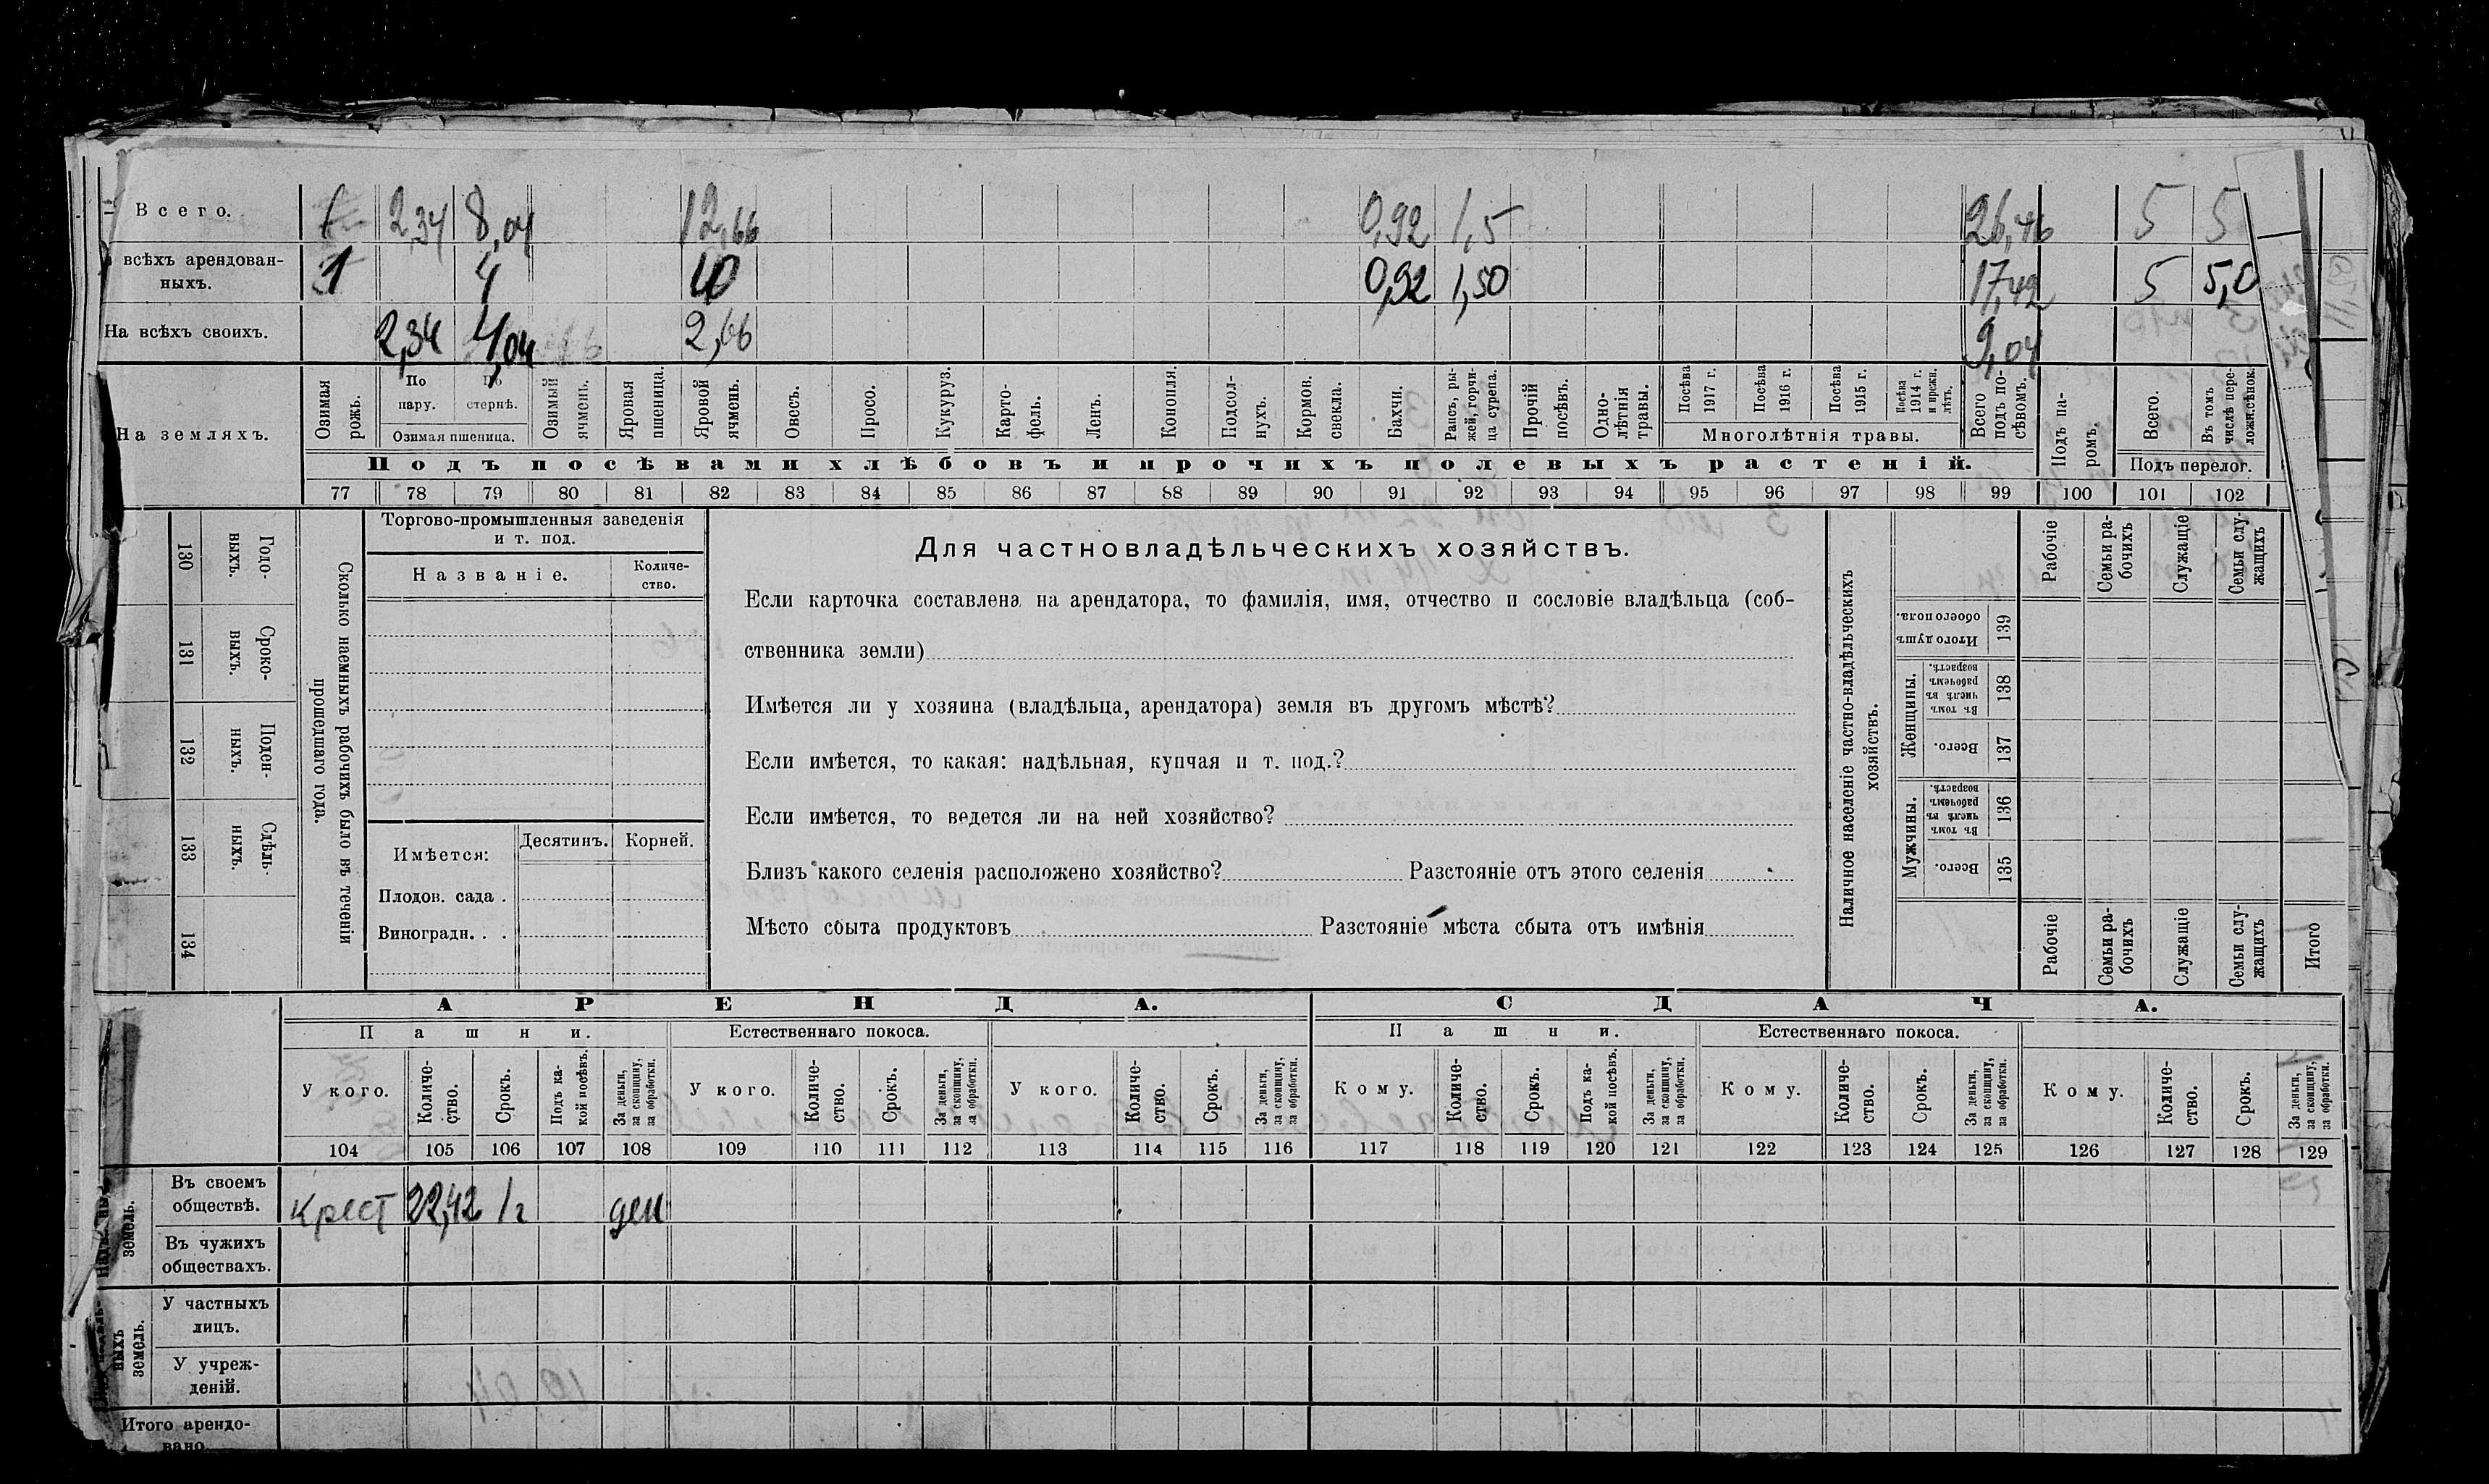 Всего. 1 2,34 8,04 12,66 0,92 1,5 26,46 5 5
всѣхъ арендован-
ныхъ. 1 4 10 0,92 1,50 17,42 5 5,0
На всѣхъ своихъ. 2,34 4,04 2,66 9,04
На земляхъ.
Озимая рожь.
По пару.
По стернѣ.
Озимая пшеница.
Озимый ячмень.
Яровая пшеница.
Яровой ячмень.
Овесъ.
Просо.
Кукуруз.
Карто-
фель.
Ленъ.
Конопля.
Подсол-
нухъ.
Кормов.
свекла.
Бахчи.
Рапсъ, ры-
жей, горчи-
ца сурепа.
Прочій посѣвъ.
Одно-
лѣтнія
травы.
Посѣва 1917 г.
Посѣва 1916 г.
Посѣва 1915 г.
Посѣва 1914 г. и прежн. лѣтъ.
Многолѣтнія травы.
Всего
подъ по-
сѣвомъ.
Подъ па-
ромъ.
Всего.
Въ томъ
числѣ пере-
лож.сѣнок.
Подъ перелог.
Подъ посѣвами хлѣбовъ и прочихъ полевыхъ растеній.
77 78 79 80 81 82 83 84 85 86 87 88 89 90 91 92 93 94 95 96 97 98 99 100 101 102
130 Годо-
выхъ.
131 Сроко-
выхъ.
132 Поден-
ныхъ.
133 Сдѣль-
ныхъ.
134
Сколько наемныхъ рабочихъ было въ теченіи
прошедшаго года.
Торгово-промышленныя заведенія
и т. под.
Названіе.
Количе-
ство.
Имѣется:
Десятинъ. Корней.
Плодов. сада .
Виноградн. . .
Для частновладѣльческихъ хозяйствъ.
Если карточка составлена на арендатора, то фамилія, имя, отчество и сословіе владѣльца (соб-
ственника земли)
Имѣется ли у хозяина (владѣльца, арендатора) земля въ другомъ мѣстѣ?
Если имѣется, то какая: надѣльная, купчая и т. под.?
Если имѣется, то ведется ли на ней хозяйство?
Близъ какого селенія расположено хозяйство? Разстояніе отъ этого селенія
Мѣсто сбыта продуктовъ Разстояніе мѣста сбыта отъ имѣнія
Наличное населеніе частно-владѣльческихъ
хозяйствъ.
Рабочіе
Семьи ра-
бочихъ
Служащіе
Семьи слу-
жащихъ
Итого душъ
обоего пола.
139
Женщины.
Въ томъ
числѣ въ
рабочемъ
возрастѣ.
138
Всего.
137
Мужчины.
Въ томъ
числѣ въ
рабочемъ
возрастѣ.
136
Всего.
135
Рабочіе
Семьи ра-
бочихъ
Служащіе
Семьи слу-
жащихъ
Итого
АРЕНДА. СДАЧА.
Пашни. Естественнаго покоса. Пашни. Естественнаго покоса.
У кого.
Количе-
ство.
Срокъ.
Подъ ка-
кой посѣвъ.
За деньги,
за скопщину,
за обработки.
У кого.
Количе-
ство.
Срокъ.
За деньги,
за скопщину,
за обработки.
У кого.
Количе-
ство.
Срокъ.
За деньги,
за скопщину,
за обработки.
Кому.
Количе-
ство.
Срокъ.
Подъ ка-
кой посѣвъ.
За деньги,
за скопщину,
за обработки.
Кому.
Количе-
ство.
Срокъ.
За деньги,
за скопщину,
за обработки.
Кому.
Количе-
ство.
Срокъ.
За деньги,
за скопщину,
за обработки.
104 105 106 107 108 109 110 111 112 113 114 115 116 117 118 119 120 121 122 123 124 125 126 127 128 129
земель.
Въ своемъ
обществѣ. крест 22,42 1г ден
Въ чужихъ
обществахъ.
ныхъ
земель.
У частныхъ
лицъ.
У учреж-
деній.
Итого арендо-
вано